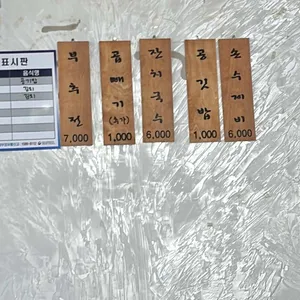 표시판
음식명
공기밥
김치
부추전
7,000
곱빼기
(추가)
1,000
잔치국수
6,000
공깃밥
1,000
손수제비
6,000